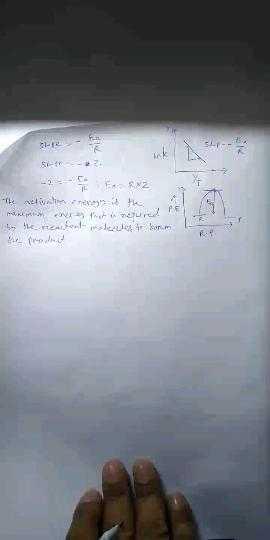 Slope = - Ea/R
ln k
Slope = - Ea/R
1/T
-2 = - Ea/R
Ea = R × 2
The activation energy is the
maximum energy that is required
by the reactant molecules to form
the product
P.E
Ea
R
P
R. P